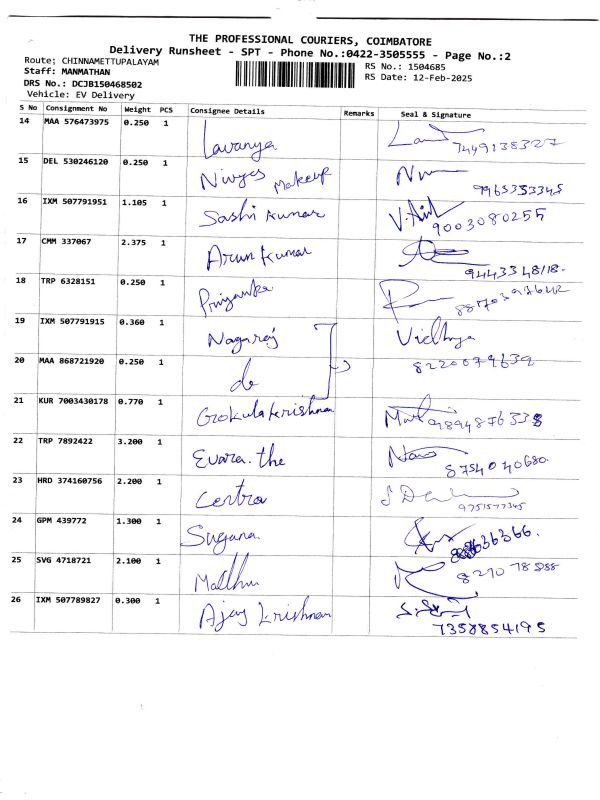 THE PROFESSIONAL COURIERS, COIMBATORE
Delivery Runsheet - SPT - Phone No.:0422-3505555 - Page No.:2
Route; CHINNAMETTUPALAYAM
Staff: MANMATHAN
DRS No.: DCJB150468502
Vehicle: EV Delivery
RS No.: 1504685
RS Date: 12-Feb-2025
S No Consignment No Weight PCS Consignee Details Remarks Seal & Signature
14 MAA 576473975 0.250 1 Lavanya
7449138327
15 DEL 530246120 0.250 1 Makeup
9965353345
16 IXM 507791951 1.105 1 Sashi Kumar
9003080255
17 CMM 337067 2.375 1 Arun Kumar
9443348118.
18 TRP 6328151 0.250 1 Priyanka
19 IXM 507791915 0.360 1 Nagaraj Vidhya
20 MAA 868721920 0.250 1 do 8220079639
21 KUR 7003430178 0.770 1 Gokulakrishnan
22 TRP 7892422 3.200 1 Evara. the
8754040680.
23 HRD 374160756 2.200 1 Centra
9751577345
24 GPM 439772 1.300 1 Suguna.
25 SVG 4718721 2.100 1 Madhu
26 IXM 507789827 0.300 1 Ajay Krishnan
7358854195